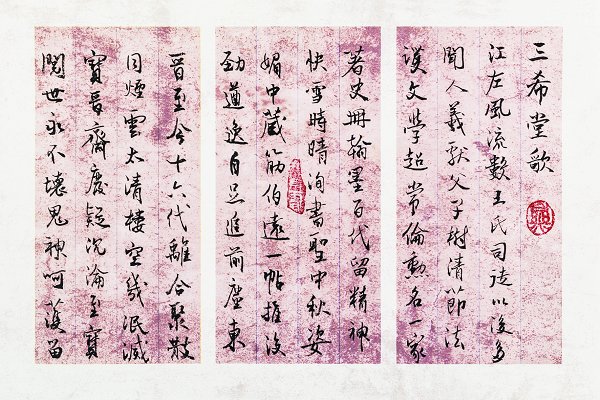 三希堂歌
江左風流數王氏司徒以後多
聞人羲獻父子樹清節法
護文學超常倫勳名一家
著史冊翰墨百代留精神
快雪時晴洵書聖中秋姿
媚中藏筋伯遠一帖推後
勁遒逸自足追前塵東
晉至今十六代離合聚散
同煙雲太清樓空幾泯滅
寶晉齋廢疑沉淪至寶
閱世永不壞鬼神呵護留